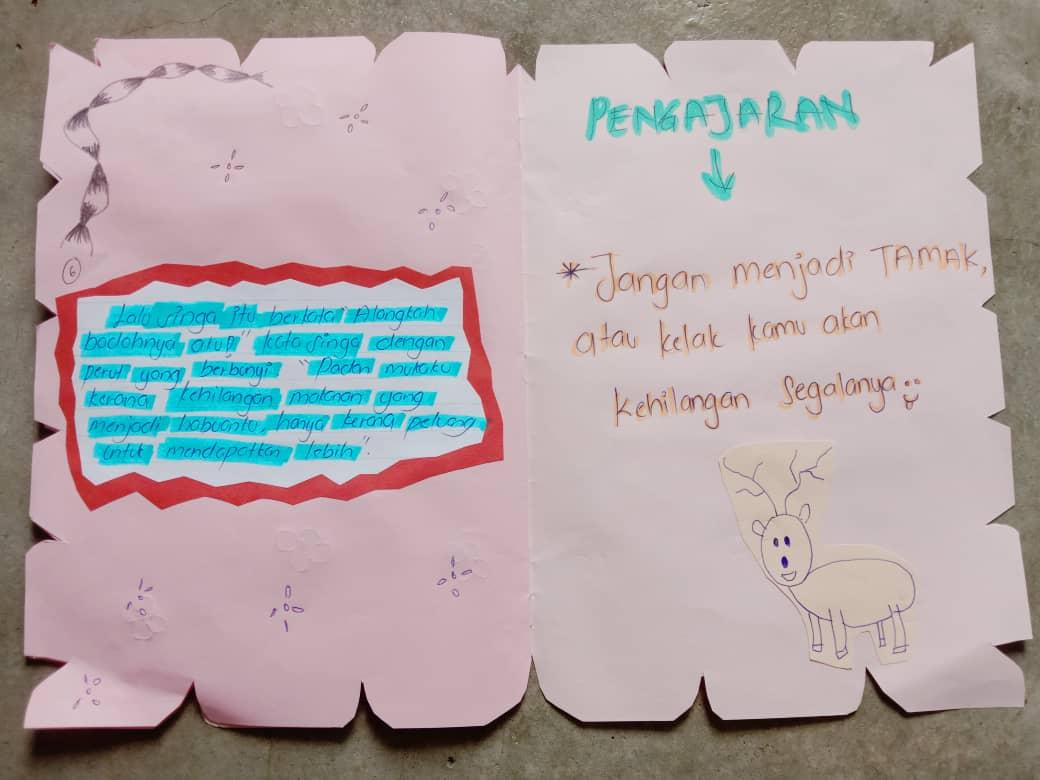 6
Lalu singa itu berkata: Alangkah
bodohnya aku!" kata singa dengan
perut yang berbunyi. "Padan mukaku
kerana kehilangan makanan yang
menjadi habuanku, hanya kerana peluang
untuk mendapatkan lebih".
PENGAJARAN
* Jangan menjadi TAMAK,
atau kelak kamu akan
kehilangan segalanya